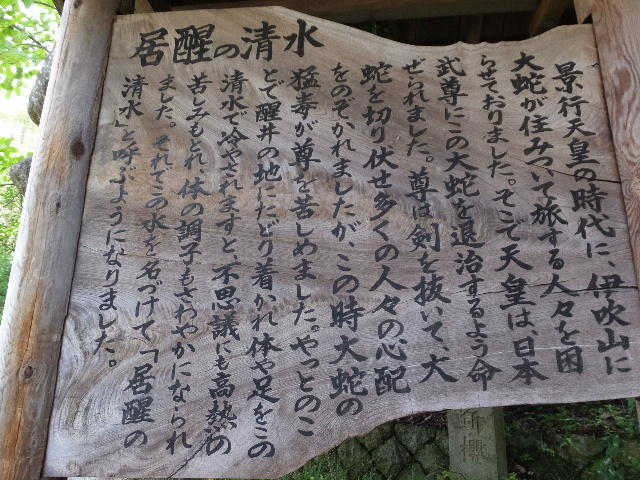 居醒の清水
景行天皇の時代に、伊吹山に
大蛇が住みついて旅する人々を困
らせておりました。そこで天皇は、日本
武尊にこの大蛇を退治するよう命
ぜられました。尊は剣を抜いて、大
蛇を切り伏せ多くの人々の心配
をのぞかれましたが、この時大蛇の
猛毒が尊を苦しめました。やっとのこ
とで醒井の地にたどり着かれ体や足をこの
清水で冷やされますと、不思議にも高熱の
苦しみもとれ、体の調子もさわやかになられ
ました。それでこの水を名づけて「居醒の
清水」と呼ぶようになりました。